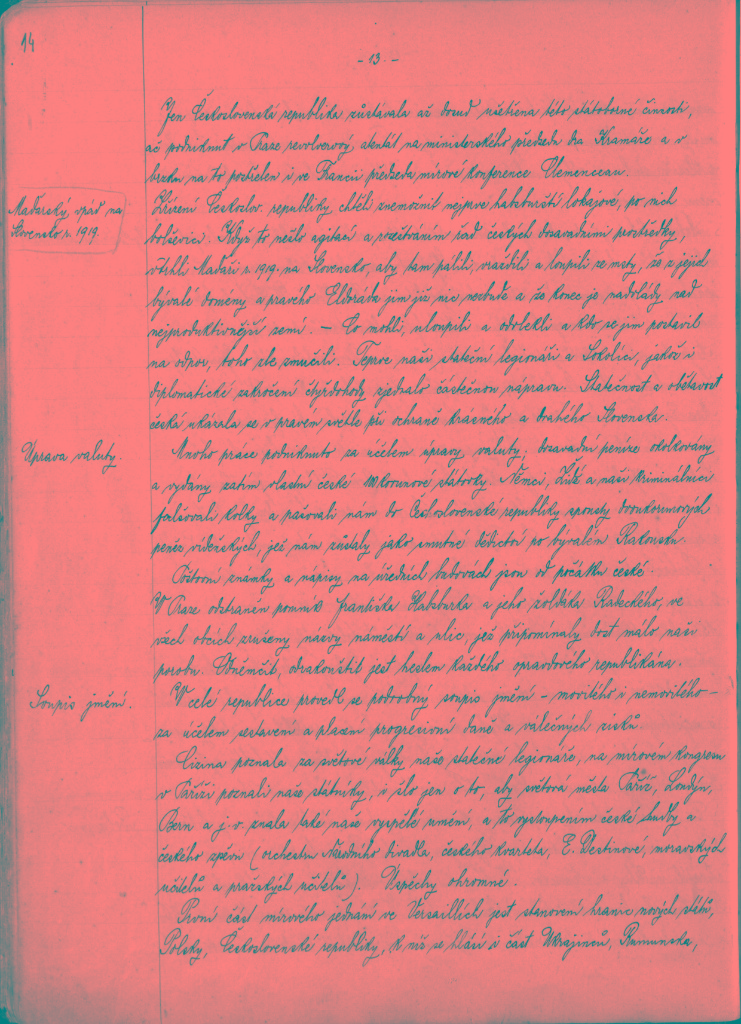 14
- 13 -
Jen Československá republika zůstávala až dosud ušetřena této státoborné činnosti,
ač podniknut v Praze revolverový atentát na ministerského předsedu dra Kramáře a v
brzku na to postřelen i ve Francii předseda mírové konference Clemenceau.
Maďarský vpád na
Slovensko r. 1919.
Zřízení Českoslov. republiky chtěli znemožnit nejprve habsburští lokajové, po nich
bolševici. Když to nešlo agitací a rozeštváním řad českých dosavadními prostředky,
vtrhli Maďaři r. 1919 na Slovensko, aby tam pálili, vraždili a loupili ze msty, že z jejich
bývalé domény a pravého Eldoráda jim již nic nezbude a že konec je nadvlády nad
nejproduktivnější zemí. — Co mohli, uloupili a odvlekli a kdo se jim postavil
na odpor, toho zle zmučili. Teprve naši stateční legionáři a Sokolíci, jakož i
diplomatické zakročení čtyřdohody zjednalo částečnou nápravu. Statečnost a obětavost
česká ukázala se v pravém světle při ochraně krásného a drahého Slovenska.
Úprava valuty.
Mnoho práce podniknuto za účelem úpravy valuty; dosavadní peníze okolkovány
a vydány zatím vlastní české 100 korunové státovky. Němci, Židé a naši kriminálníci
falšovali kolky a pašovali nám do Československé republiky spousty dvoukorunových
peněz vídeňských, jež nám zůstaly jako smutné dědictví po bývalém Rakousku.
Poštovní známky a nápisy na úředních budovách jsou od počátku české.
V Praze odstraněn pomník Františka Habsburka a jeho žoldáka Radeckého, ve
všech obcích zrušeny názvy náměstí a ulic, jež připomínaly dost málo naši
porobu. Odněmčit, odrakouštit jest heslem každého opravdového republikána.
Soupis jmění.
V celé republice provedl se podrobný soupis jmění - movitého i nemovitého -
za účelem sestavení a placení progresivní daně a válečných zisků.
Cizina poznala za světové války naše statečné legionáře, na mírovém kongresu
v Paříži poznali naše státníky, i šlo jen o to, aby světová města Paříž, Londýn,
Bern a j. v. znala také naše vyspělé umění, a to vystoupením české hudby a
českého zpěvu (orchestru Národního divadla, českého kvarteta, E. Destinové, moravských
učitelů a pražských učitelů). Úspěchy ohromné.
První část mírového jednání ve Versaillích jest stanovení hranic nových států,
Polsky, Československé republiky, k níž se hlásí i část Ukrajinců, Rumunska,